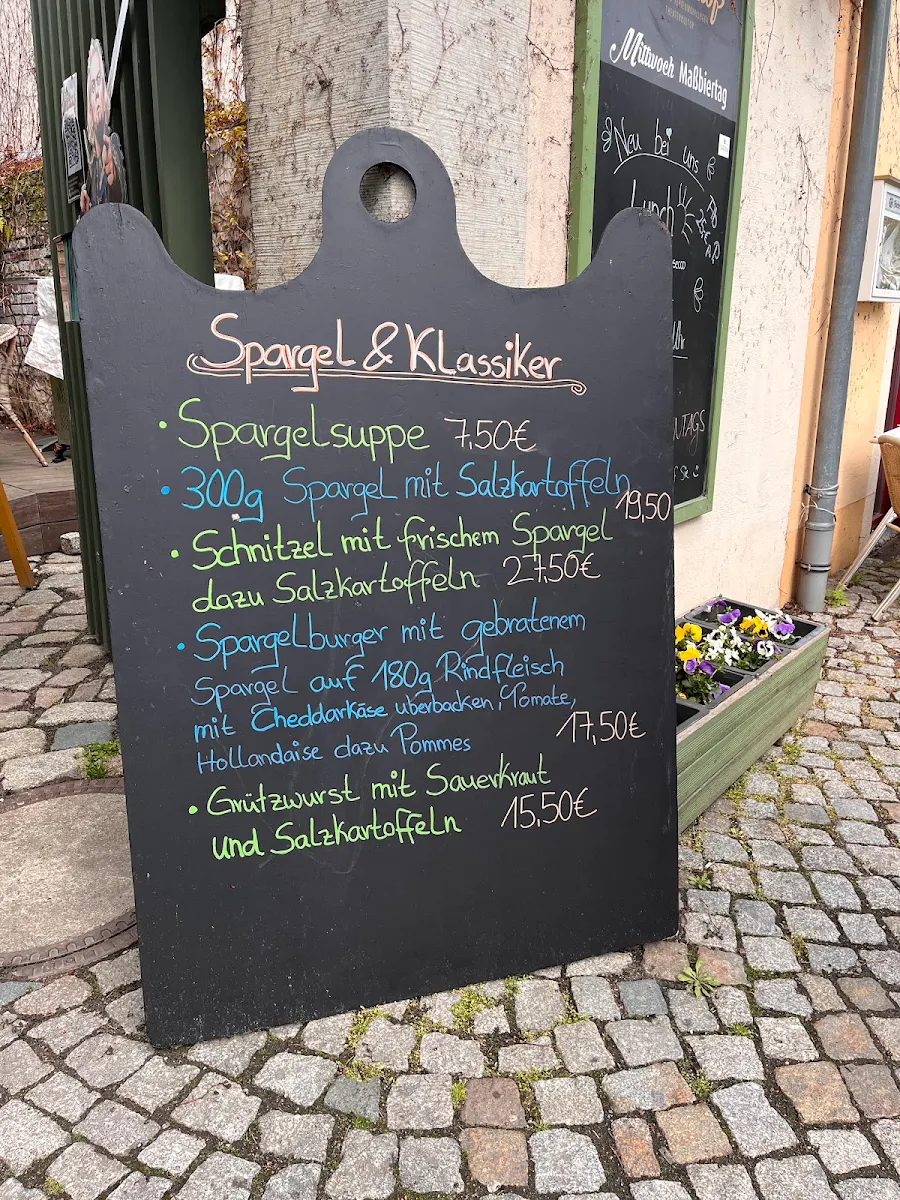 Mittwoch Maßbiertag
Neu bei uns
Lunch
Spargel & Klassiker
• Spargelsuppe 7,50€
• 300g Spargel mit Salzkartoffeln
19,50
• Schnitzel mit frischem Spargel
dazu Salzkartoffeln 27,50€
• Spargelburger mit gebratenem
Spargel auf 180g Rindfleisch
mit Cheddarkäse uberbacken, Tomate,
Hollandaise dazu Pommes 17,50€
• Grützwurst mit Sauerkraut
und Salzkartoffeln 15,50€